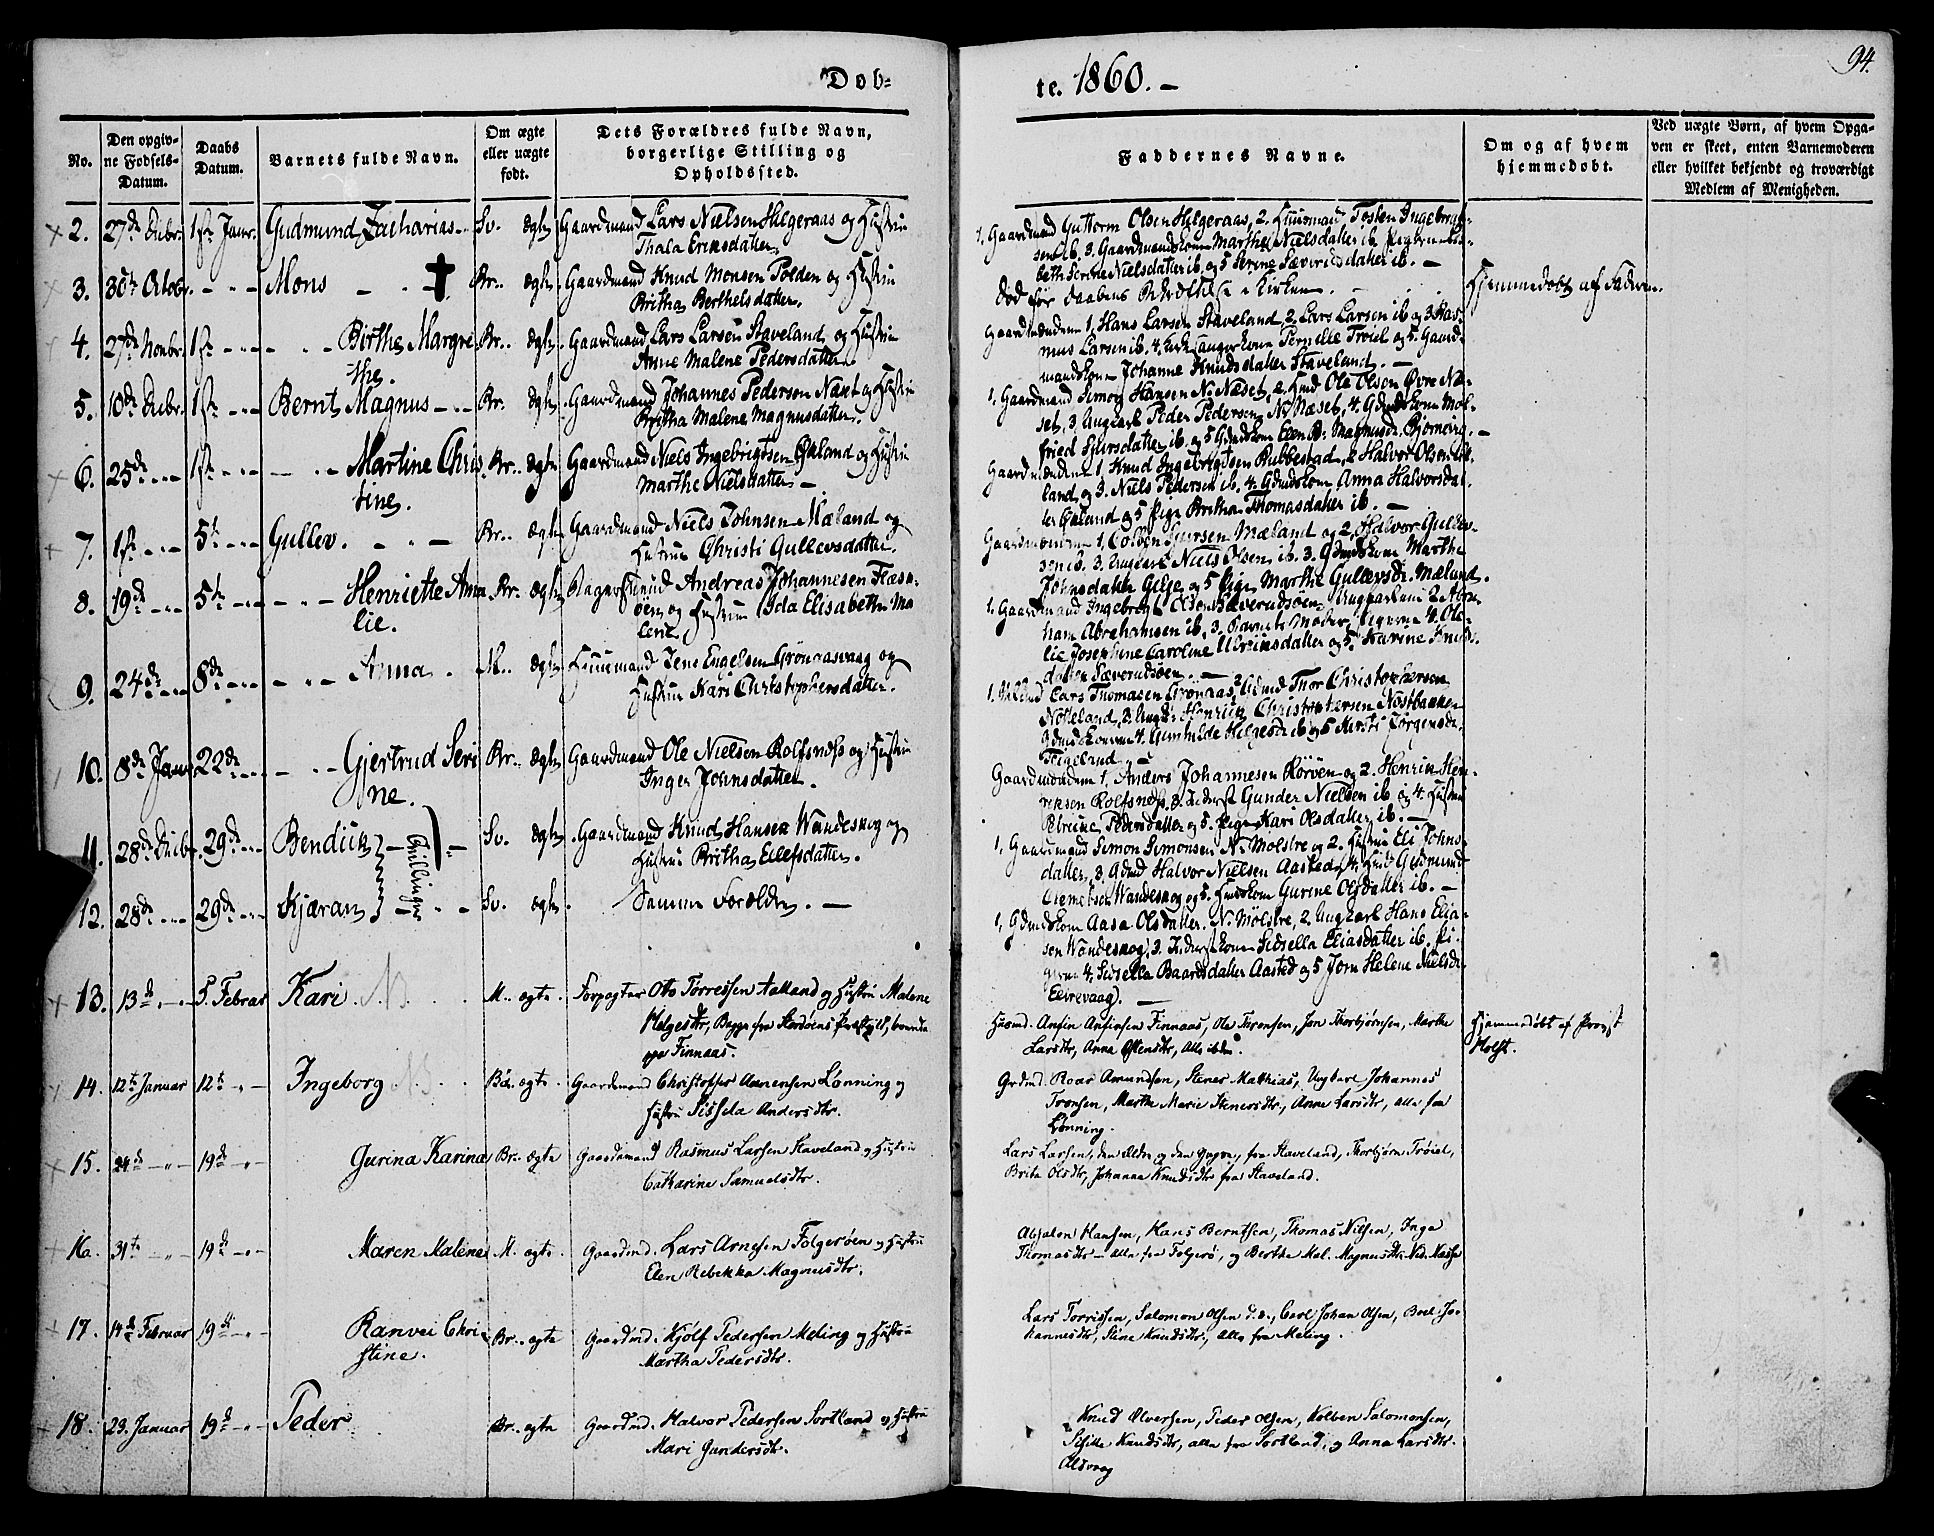 Dob-
te. 1860. –
94.
No.
Den opgiv-
ne Fodsels-
Datum.
Daabs
Datum.
Barnets fulde Navn.
Om ægte
eller uægte
født.
Dets Forældres fulde Navn,
borgerlige Stilling og
Opholdssted.
Faddernes Navne.
Om og af hvem
hjemmedobt.
Ved uægte Born, af hvem Opga-
ven er skeet, enten Barnemoderen
eller hvilket bekjendt og troværdigt
Medlem af Menigheden.
2. 27de Decbr. 1ste Janr. Gudmund Zacharias Sv. ægte Gaardmand Lars Nielsen Helgeraas og Hustru
Thala Eriksdatter.
1, Gaardmand Guttorm Olsen Helgeraas, 2. Huusmand Tosten Ingebrigt-
sen ib, 3. Gaardmandskone Marthe Nielsdatter ib
beth Serine Nielsdatter ib. og 5 Serine Sæverudsdatter ib. –
3. 30te Octobr. Mons Br. ægte Gaardmand Knud Monsen Polden og Hustru
Britha Berthelsdatter.
død før Daabens i Kirken.
Hjemmedobt af Faderen.
4. 27de Novbr. 1ste Birthe Margre- Br. ægte Gaardmand Lars Larsen Staveland og Hustru
the. Anne Malene Pedersdatter.
Gaardmændene 1, Hans Larsen Staveland 2, Lars Larsen ib og 3 Ras-
mus Larsen ib. 4. Pernelle Trøiel og 5. Gaard-
mandskone Johanne Knudsdatter Staveland. –
5. 10de Decbr. 1ste Bernt Magnus Br. ægte Gaardmand Johannes Pedersen Næset og Hustru
Britha Malene Magnusdatter.
1, Gaardmand Simon Hansen N. Næset, 2. Ole Olsen Øvre Næ-
set, 3, Ungkarl Peder Pedersen N. Næset, 4. Gdmdskone Mol-
fried Sjursdatter ib. og 5 Gdmdskone Elen B. Magnusdr. –
6. 25de 1ste Martine Chris- Br. ægte Gaardmand Niels Ingebrigtsen Økland og Hustru
tine. Marthe Nielsdatter –
Gaardmændene 1, Knud Ingebrigtsen Rubbestad, 2 Halvor Olsen Øk-
land, og 3. Niels Pedersen ib, 4. Gdmdskone Anna Halvorsdat-
ter Økland og 5 Pige Britha Thomasdatter ib. –
7. 1ste 5te Gullev. Br. ægte Gaardmand Niels Johnsen Mæland og
Hustru Christi Gullevsdatter.
Gaardmændene 1, Colben Sjursen Mæland og 2, Halvor Gullev-
sen ib. 3. Ungkarl Niels Olsen ib. 3. Gdmdskone Marthe
Johnsdatter Gilje og 5 Pige Marthe Gullevsdr. Mæland.
8. 19de 5te Henriette Ama- Br. ægte Andreas Johannesen Flæsk-
lie. øen og Hustru Ida Elisabeth Ma-
lene.
1, Gaardmand Ingebrigt Olsen Sæverudsøen, 2 Abra-
ham Abrahamsen ib, 3. Barnets Moder, Pigerne 4. Ole-
lie Josephine Caroline Ulriksdatter og 5. Karine Knuds-
datter Sæverudsøen. –
9. 24de 8de Anna M. ægte Huusmand Jens Engelsen Grønaasvaag og
Hustru Kari Christophersdatter.
1. Lars Thomasen Grønaas, 2 Gdmd Thor Christophersen
Nøtteland, 3. Ungk. Henrich Christophersen Nøstbakken
Gdmdskonerne 4. Gunnhilde Helgesdr ib og 5 Kirsti Jørgensdr.
Teigland –
10. 8de Janr. 22de Gjertrud Seri- Br. ægte Gaardmand Ole Nielsen Rolfsness og Hustru
ne. Inger Johnsdatter.
Gaardmændene 1, Anders Johannesen Rørven og 2. Henrik Hen-
riksen Rolfsness. 3. Gunder Nielsen ib og 4. Hustru
Olrine Pedersdatter og 5. Pige Kari Olsdatter ib. –
11. 28de Decbr. 29de Bendich Tvillinger Sv. ægte Gaardmand Knud Hansen Wandeskog og
Hustru Britha Eilefsdatter.
1, Gaardmand Simon Simonsen N. Mølstre og 2. Hustru Eli Johns-
datter, 3. Gdmd Halvor Nielsen Aasted, 4. Gudmund
Clemetsen Wandeskog og 5. Huuskone Gurine Olsdatter ib. –
12. 28de 29de Kjæran Sv. ægte Samme Forældre. –
1, Gdmdskone Aasa Olsdatter N. Mølstre, 2. Ungkarl Hans Elia-
sen Wandeskog, 3. Sidsella Eliasdatter ib. Pi-
gerne 4. Sidsella Baardsdatter Aasted og 5 Jorn Helene Nielsdr.
Eirevaag. –
13. 13de 5. Februar Kari. NB. M. ægte Forpagter Otto Torressen Aalland og Hustru Malene
Helgesdtr, Begge fra Stordøens Præstgjld, boende
paa Finnaas.
Husmd. Anfin Anfinsen Finnaas, Ole Thronsen, Jon Thorbjørnsen, Marthe
Larsdtr, Anna Østensdtr, Alle ibdm.
Hjemmedøbt af Provst
Holst.
14. 12te Januar 12te Ingeborg NB Bø. ægte Gaardmand Christopher Aamensen Lønning og
Hustru Sissela Andersdtr.
Grdmd. Roar Amundsen, Stener Mathias, Ungkarl Johannes
Tronsen, Marthe Marie Stenersdtr, Anne Larsdtr, alle fra
Lønning.
15. 24de 19de Gurina Karina Br. ægte Gaardmand Rasmus Larsen Staveland og Hustru
Catharine Samuelsdtr.
Lars Larsen, den Eldre og den Yngre, fra Staveland, Thorbjørn Trøiel,
Brita Olsdtr, Johanna Knudsdtr fra Staveland.
16. 31te 19de Maren Malene M. ægte Gaardmd. Lars Arnesen Folgerøen og Hustru
Elen Rebekka Magnusdtr.
Absalon Hansen, Hans Berntsen, Thomas Nilsen, Inga
Thomasdtr – alle fra Folgerø, og Bertha Mal. Magnusdtr Ned. Næsse
17. 14de Februar 19de Ranvei Chri- Br. ægte Gaardmd. Kjølf Pedersen Meling og Hustru
stine. Martha Pedersdtr.
Lars Torrissen, Salomon Olsen d.æ., Carl Johan Olsen, Boel Jo-
hannesdtr, Stine Knudsdtr, alle fra Meling.
18. 23. Januar 19de Peder Br. ægte Gaardmd. Halvor Pedersen Sortland og Hustru
Mari Gundersdtr.
Knud Olversen, Peder Olsen, Kolben Salomonsen,
Sissele Knudsdtr, alle fra Sortland, og Anna Larsdtr.
Alsvaag